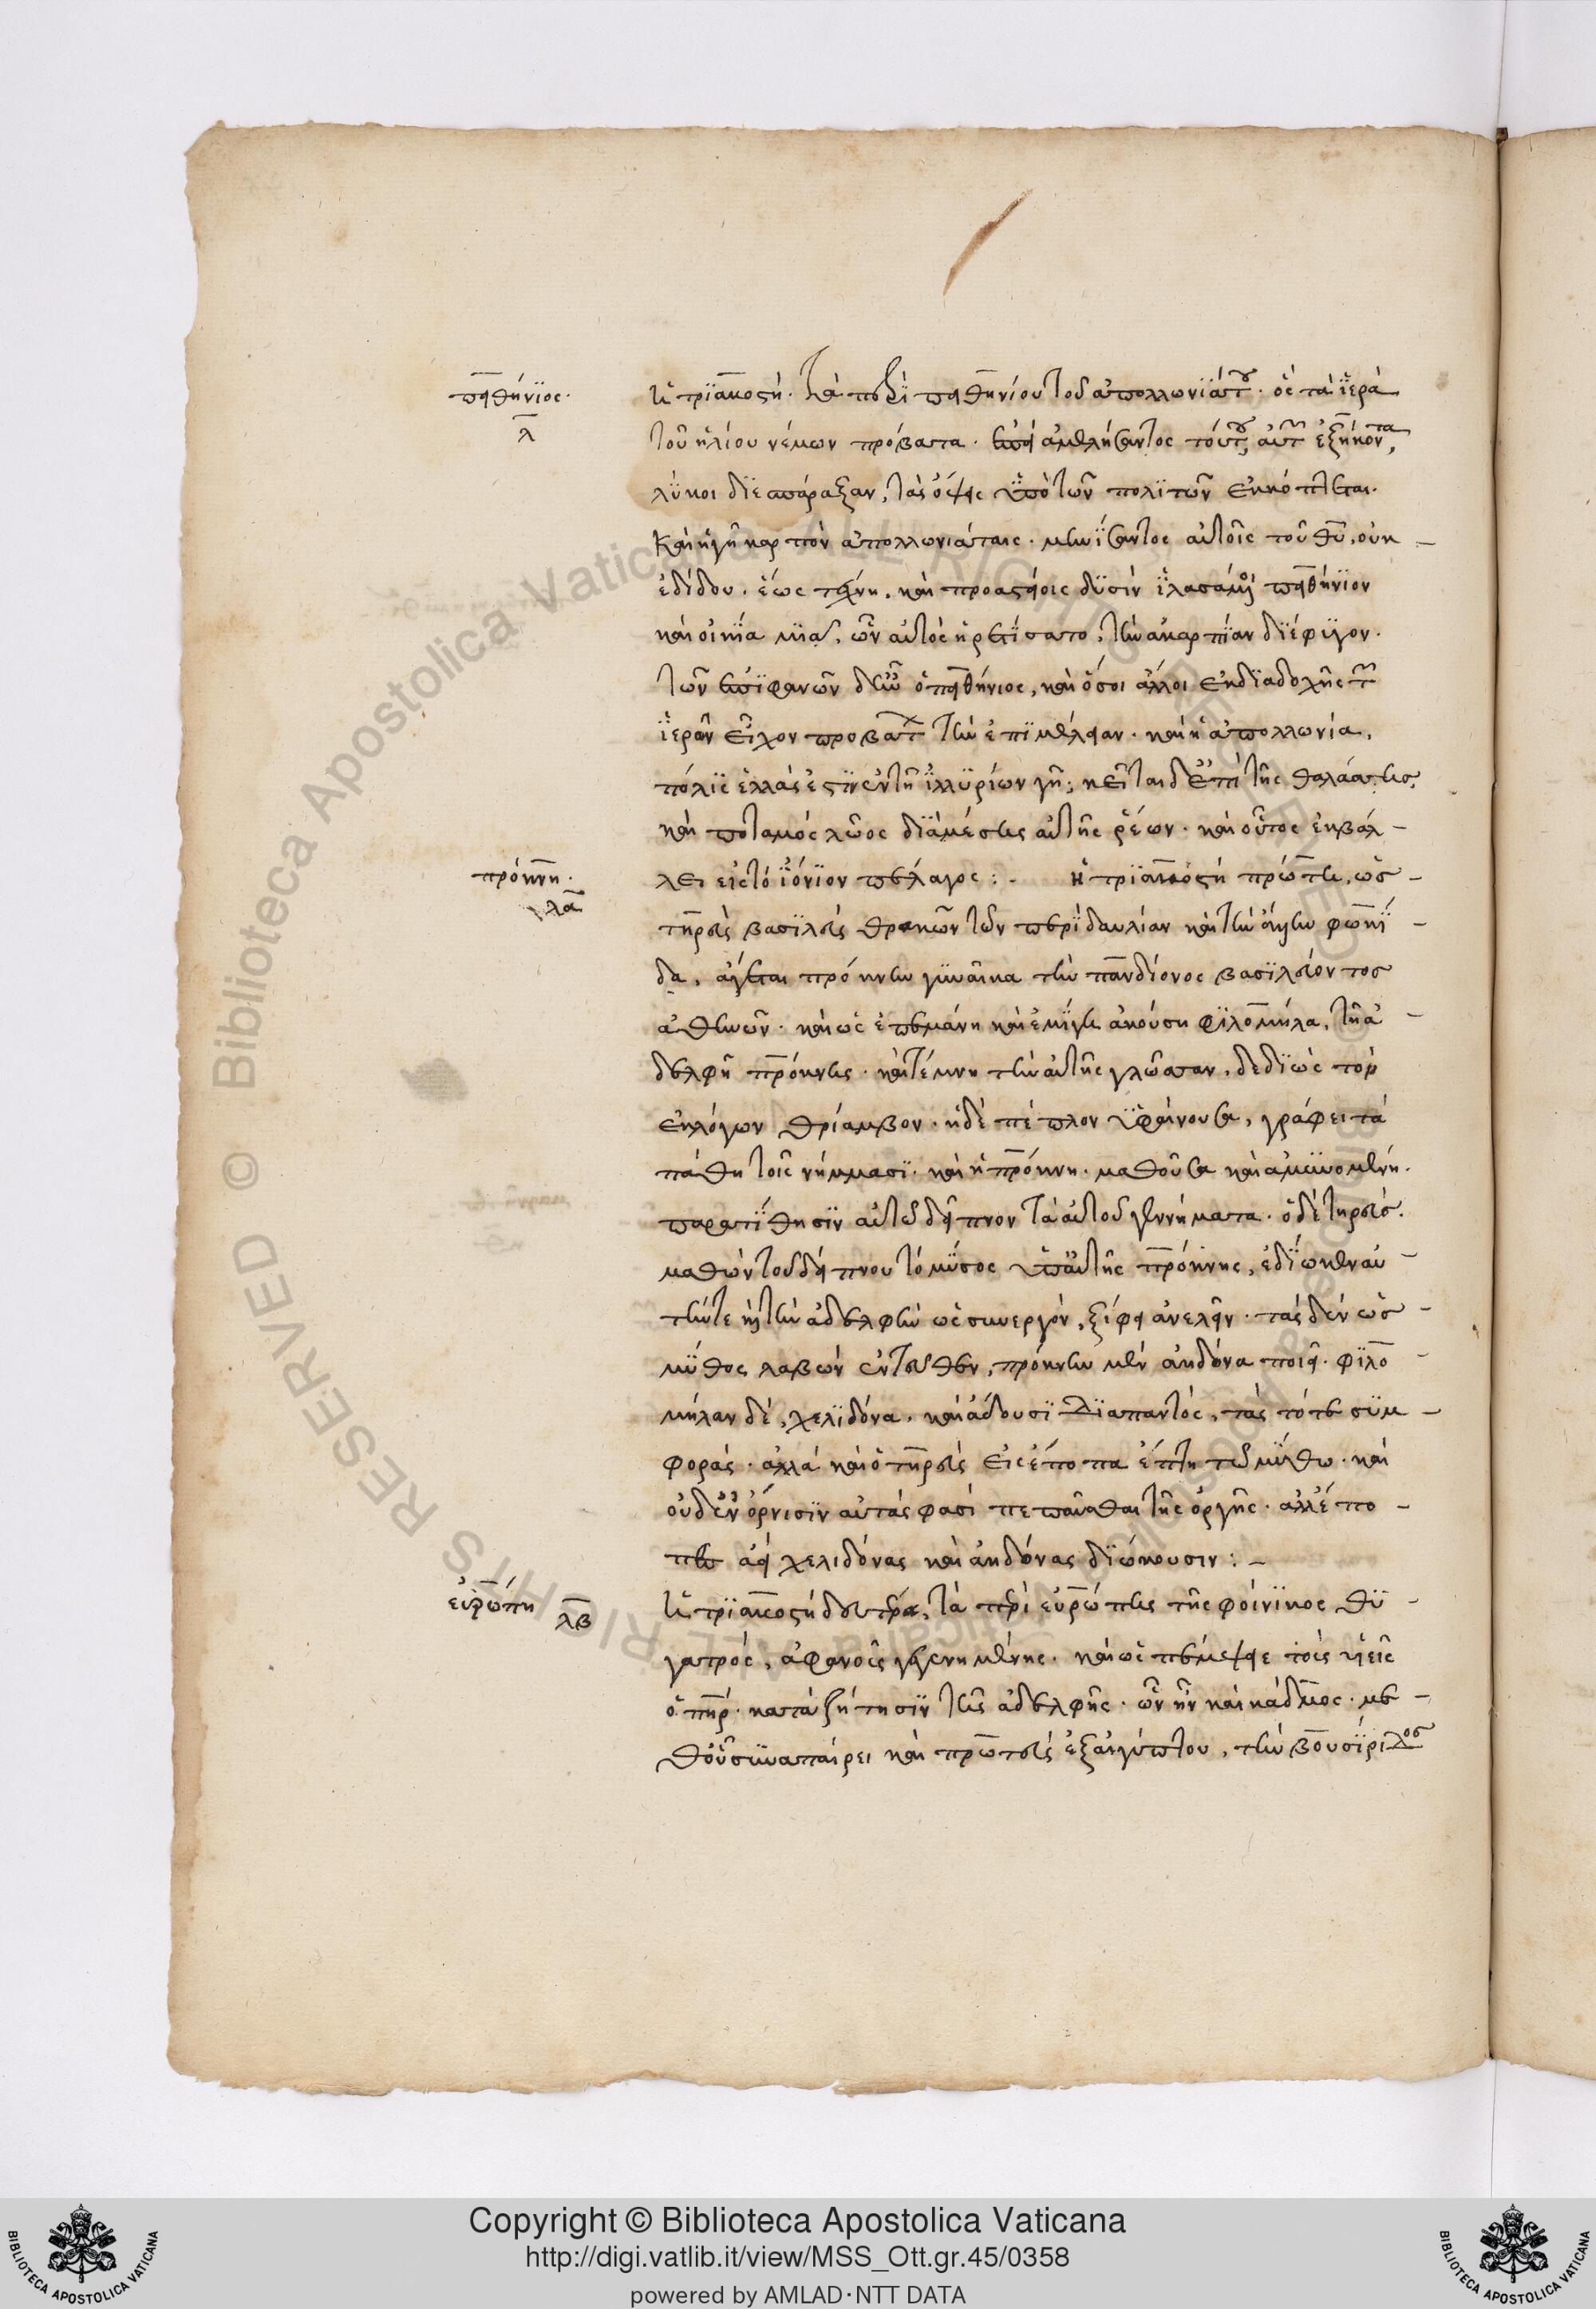 πειθήνιος.
λ
Ἡ τριακοστή. τὰ περὶ πειθηνίου τοῦ ἀπολλωνιάτου. ὃς τὰ ἱερὰ
τοῦ ἡλίου νέμων πρόβατα. ἐπεὶ ἀμελήσαντος τούτου, αὐτῶν ἑξήκοντα,
λύκοι διεσπάραξαν, τὰς ὄψεις ὑπὸ τῶν πολιτῶν ἐκκόπτεται.
καὶ ἡ γῆ καρπὸν ἀπολλωνιάταις. μηνίσαντος αὐτοῖς τοῦ θυ, οὐκ
ἐδίδου. ἕως τέχνη, καὶ προαστείοις δυσὶν ἱλασάμενοι πειθήνιον
καὶ οἰκία μιᾷ, ὧν αὐτὸς ᾑρετίσατο, τὴν ἀκαρπίαν διέφυγον.
τῶν ἐπιφανῶν δ' ἦν ὁ πειθήνιος, καὶ ὅσοι ἄλλοι ἐκ διαδοχῆς τῶν
ἱερῶν εἶχον προβάτων τὴν ἐπιμέλειαν. καὶ ἡ ἀπολλωνία,
πόλις ἑλλάς ἐστιν ἐν τῇ ἰλλυρίων γῇ; κεῖται δ' ἐπὶ τῆς θαλάσσης,
καὶ ποταμὸς λῶος διὰ μέσης αὐτῆς ῥέων. καὶ οὗτος ἐκβάλ-
πρόκνη.
λα
λει εἰς τὸ ἰόνιον πέλαγος:. ἡ τριακοστὴ πρώτη, ὡς
τηρεὺς βασιλεὺς θρακῶν τῶν περὶ δαυλίαν καὶ τὴν ἄλλην φωκί-
δα, ἄγεται πρόκνην γυναῖκα τὴν πανδίονος βασιλεύοντος
ἀθηνῶν. καὶ ὡς ἐπεμάνη καὶ ἐμίγη ἀκούση φιλομήλα, τῇ ἀ-
δελφῇ πρόκνης. καὶ τέμνη τὴν αὐτῆς γλῶσσαν, δεδιὼς τὸν
ἐκ λόγων θρίαμβον. ἡ δὲ πέπλον ὑφαίνουσα, γράφει τὰ
πάθη τοῖς νήμμασι. καὶ ἡ πρόκνη. μαθοῦσα καὶ ἀμυνομένη.
παρατίθησιν αὐτῷ δεῖπνον τὰ αὐτοῦ γεννήματα. ὁ δὲ τηρεύς.
μαθὼν τοῦ δείπνου τὸ μύσος ὑπ' αὐτῆς πρόκνης, ἐδίωκεν αὐ-
τήν τε καὶ τὴν ἀδελφὴν ὡς συνεργόν, ξίφει ἀνελεῖν. τὰς δ' ἐν ὡς
μῦθος λαβὼν ἐντεῦθεν, πρόκνην μὲν ἀηδόνα ποιεῖ. φιλο-
μήλαν δὲ, χελιδόνα. καὶ ἄδουσι διαπαντός, τὰς τότε συμ-
φοράς. ἀλλὰ καὶ ὁ τηρεὺς εἰς ἔποπα ἔπτη τῷ μύθω. καὶ
οὐδ' ἐν ὄρνισιν αὐτάς φασὶ πεπαῦσθαι τῆς ὀργῆς. ἀλλ' ἔπο-
πες ἀεὶ χελιδόνας καὶ ἀηδόνας διώκουσιν:-
εὐρώπη λβ
Ἡ τριακοστὴ δευτέρα, τὰ περὶ εὐρώπης τῆς φοίνικος θυ-
γατρός, ἀφανοῦς γεγενημένης. καὶ ὡς πέμψειε τοὺς υἱεῖς
ὁ πηρ. κατὰ ζήτησιν τῆς ἀδελφῆς. ὧν ἦν καὶ κάδμος. με-
θ' οὗ συναπαίρει καὶ πρωτεὺς ἐξ αἰγύπτου, τὴν βουσίριδος
Copyright © Biblioteca Apostolica Vaticana
http://digi.vatlib.it/view/MSS_Ott.gr.45/0358
powered by AMLAD·NTT DATA